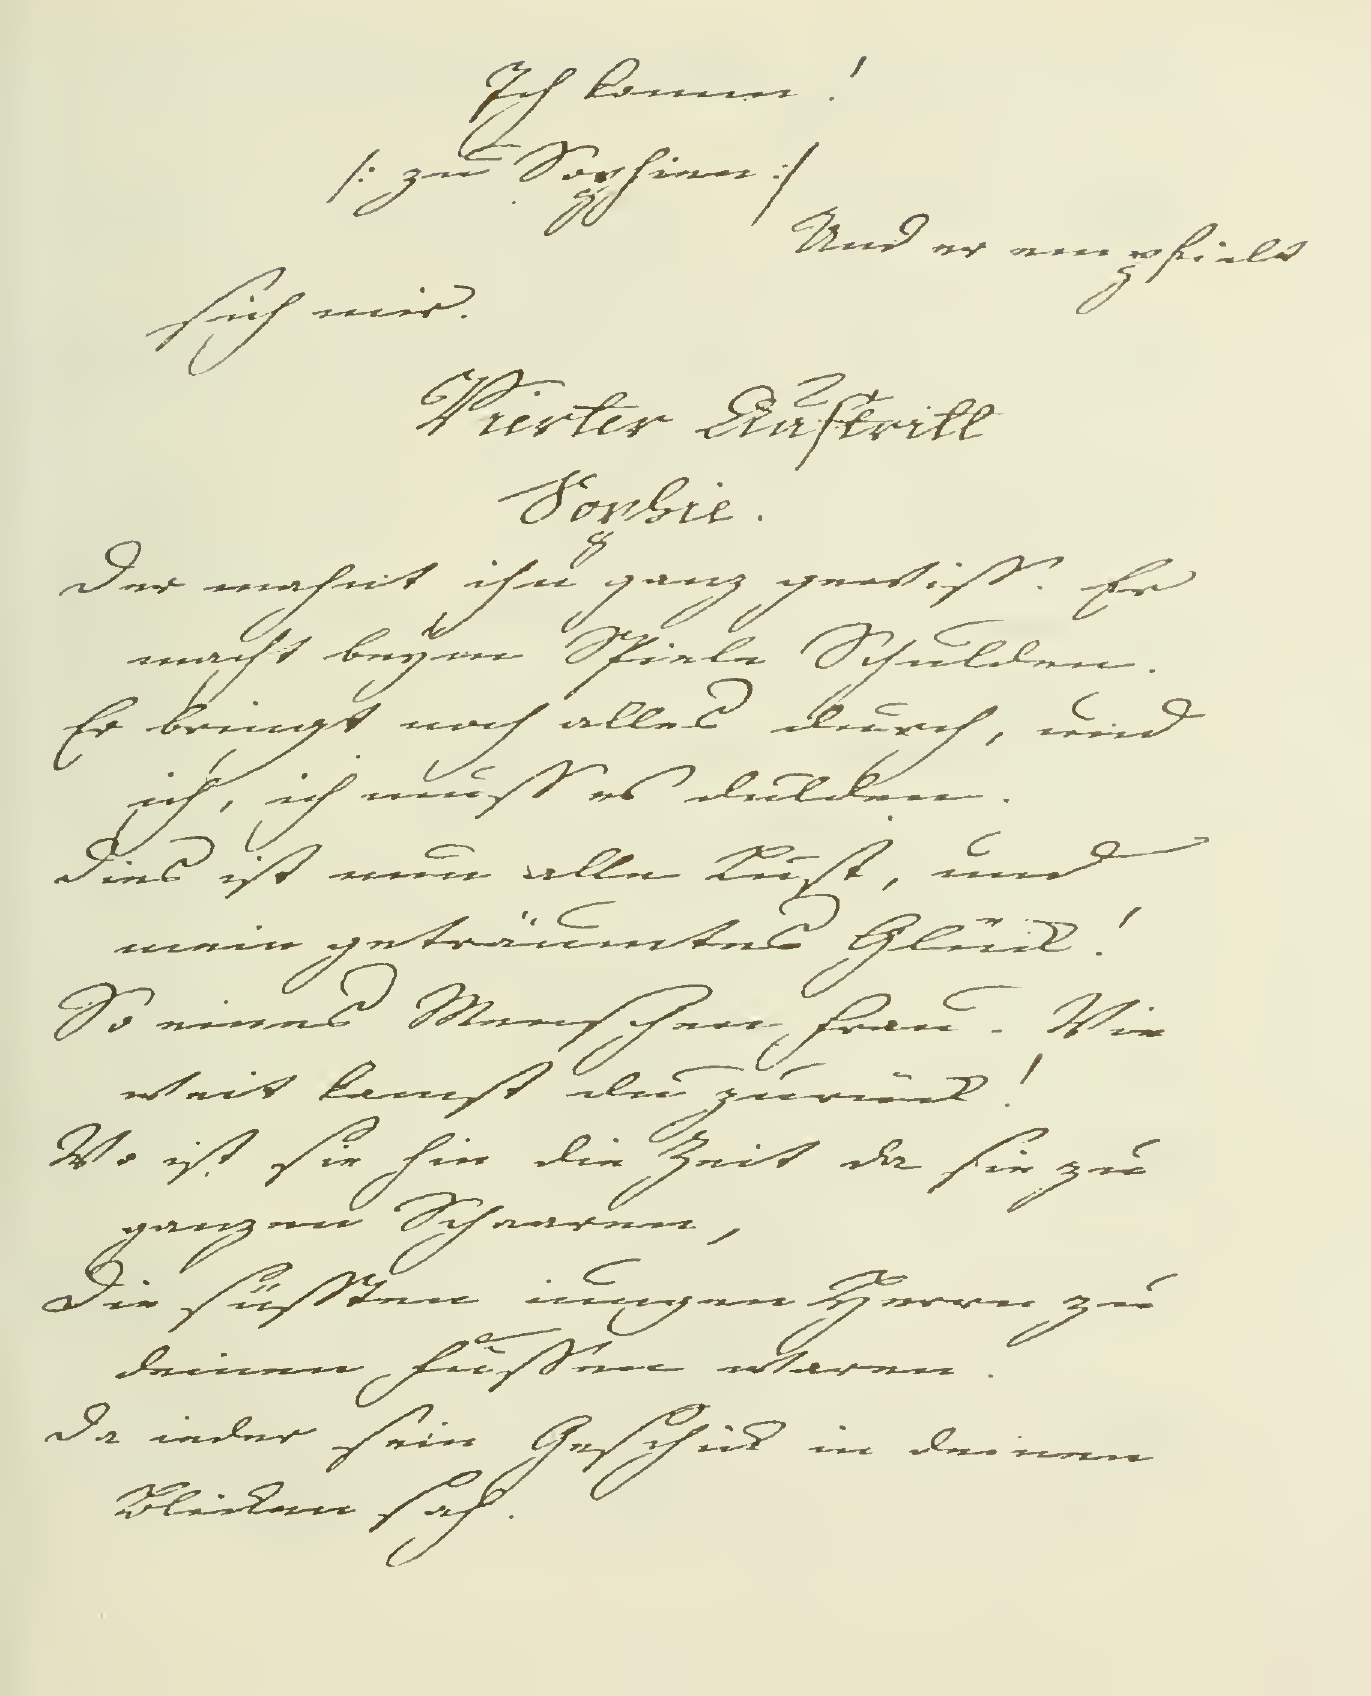 Ich komm!
/: zu Sophien :/
Und er empfielt
sich mir.
Vierter Auftritt
Sophie.
Der mahnt ihn ganz gewiss. Er
macht beym Spiele Schulden.
Er bringt noch alles durch, und
ich, ich muss es dulden.
Dies ist nun alle Lust, und
mein geträumtes Glück!
So eines Menschen Frau. Wie
weit kamst du zurück!
Wo ist sie hin die Zeit da sie zu
ganzen Schaaren,
Die süssten iungen Herrn zu
deinen Füssen waren.
Da ieder sein Geschick in deinen
Blicken sah.